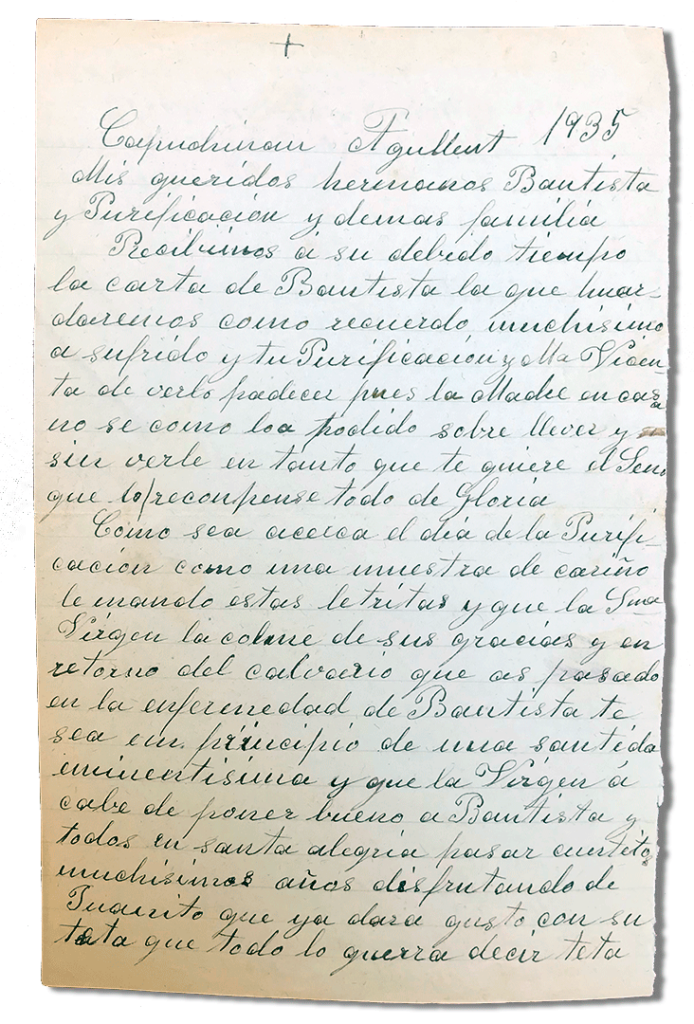 +
Capuchinas Agullent 1935
Mis queridos hermanos Bautista
y Purificación y demas familia
Recibimos á su debido tiempo
la carta de Bautista la que huar-
daremos como recuerdo muchisimo
a sufrido y tu Purificación y Ma Vicen-
ta de verlo padecer pues la Madre en casa
no se como loa podido sobre llever y
sin verle en tanto que te quiere el Seno
que lo reconpense todo de Gloria
Como sea acerca el dia de la Purifi-
cación como una muestra de cariño
le mando estas letritas y que la Sma
Virgen la colme de sus gracias y en
retorno del calvario que as pasado
en la enfermedad de Bautista te
sea em principio de una santida
eminentisima y que la Virgen á
cabe de poner bueno a Bautista y
todos en santa alegria pasar cuntitos
muchisimos años disfrutando de
Juanito que ya dara gusto con su
tata que todo lo querra decir teta